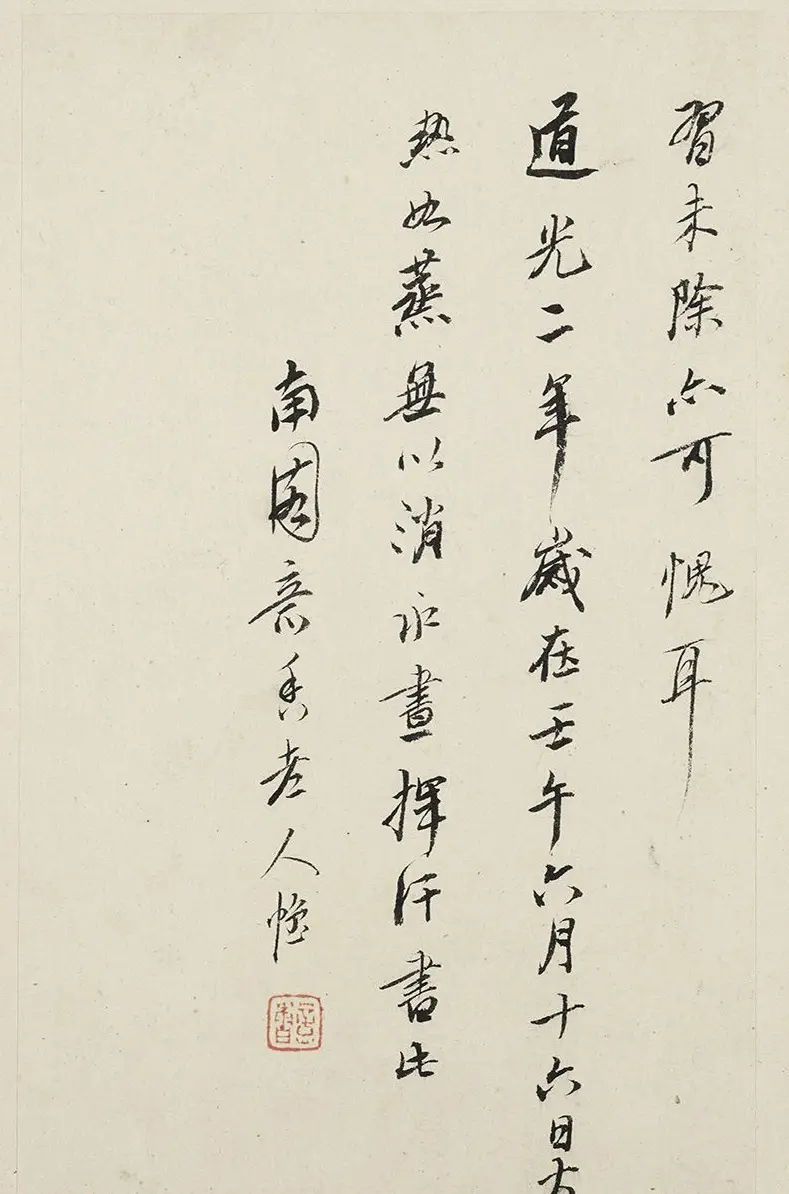 習未除亦可愧耳
道光二年歲在壬午六月十六日大
熱如蒸無以消永晝揮汗書此
南園意香老人愷